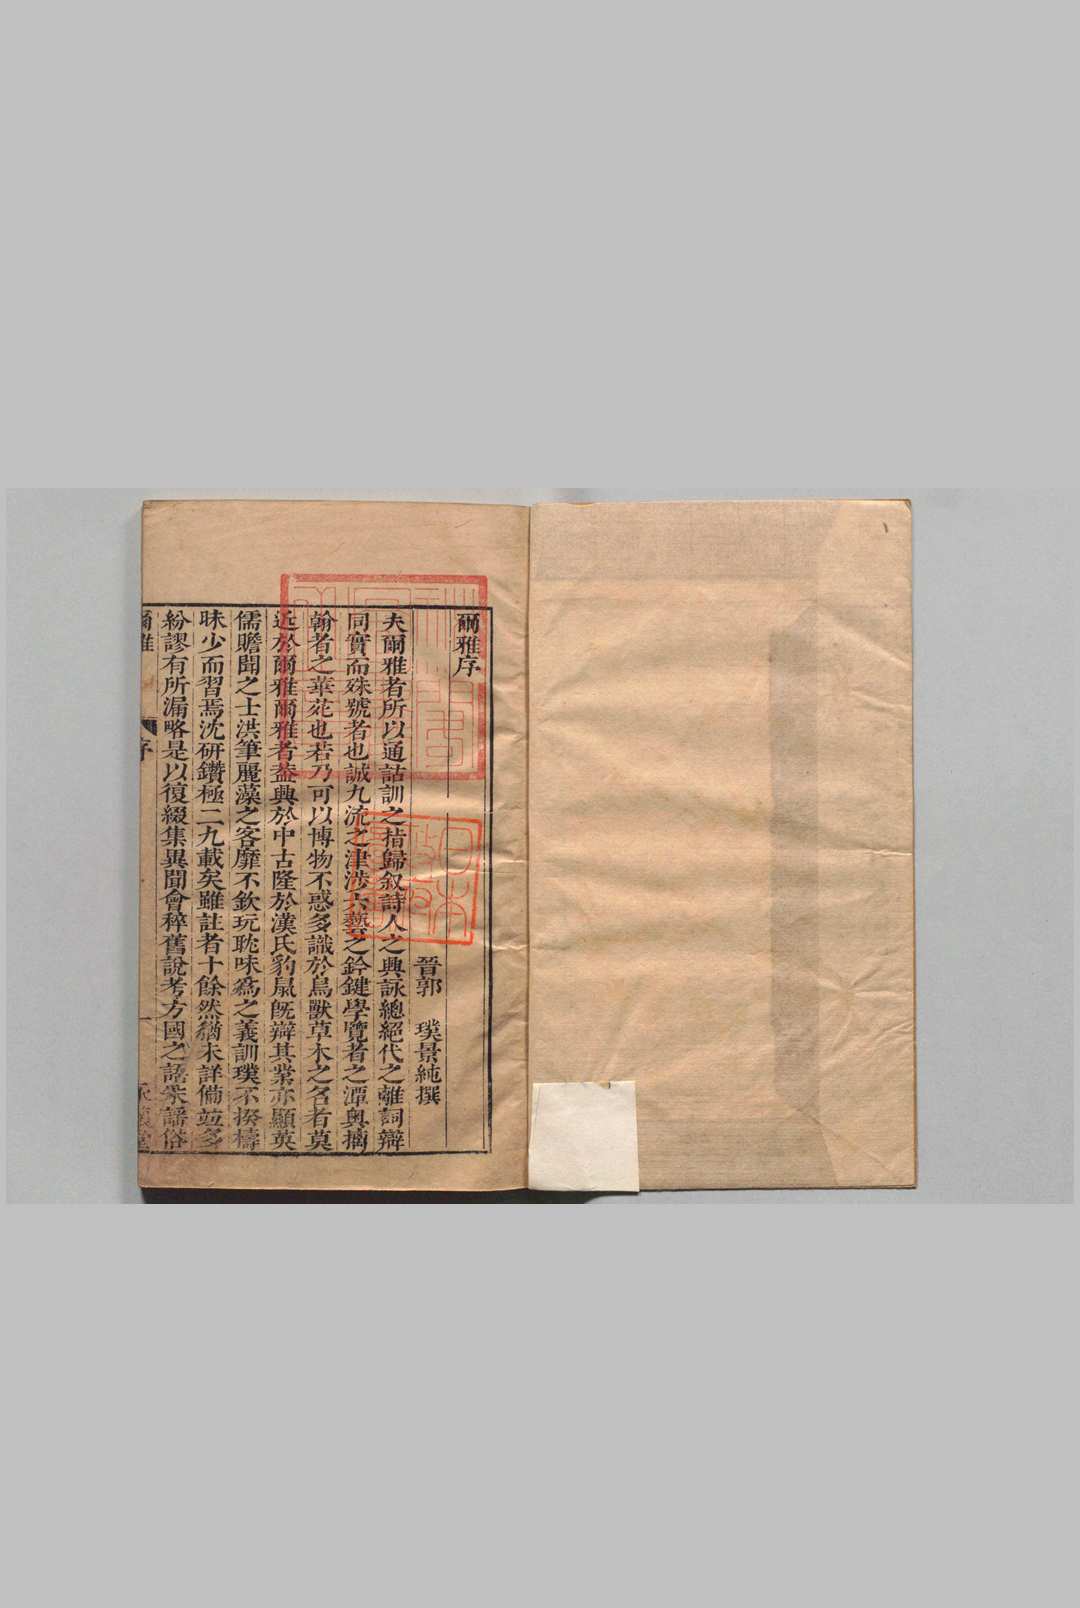 爾雅序
晉郭 璞景純撰
夫爾雅者所以通詁訓之指歸叙詩人之興詠總絕代之離詞辯
同實而殊號者也誠九流之津涉六藝之鈐鍵學覽者之潭奥摛
翰者之華苑也若乃可以博物不惑多識於鳥獸草木之名者莫
近於爾雅爾雅者葢興於中古隆於漢氏豹鼠旣辯其業亦顯英
儒贍聞之士洪筆麗藻之客靡不欽玩耽味爲之義訓璞不揆檮
昧少而習焉沈研鑽極二九載矣雖註者十餘然猶未詳備竝多
紛謬有所漏略是以復綴集異聞會稡舊說考方國之語采謠俗
爾雅 序 一